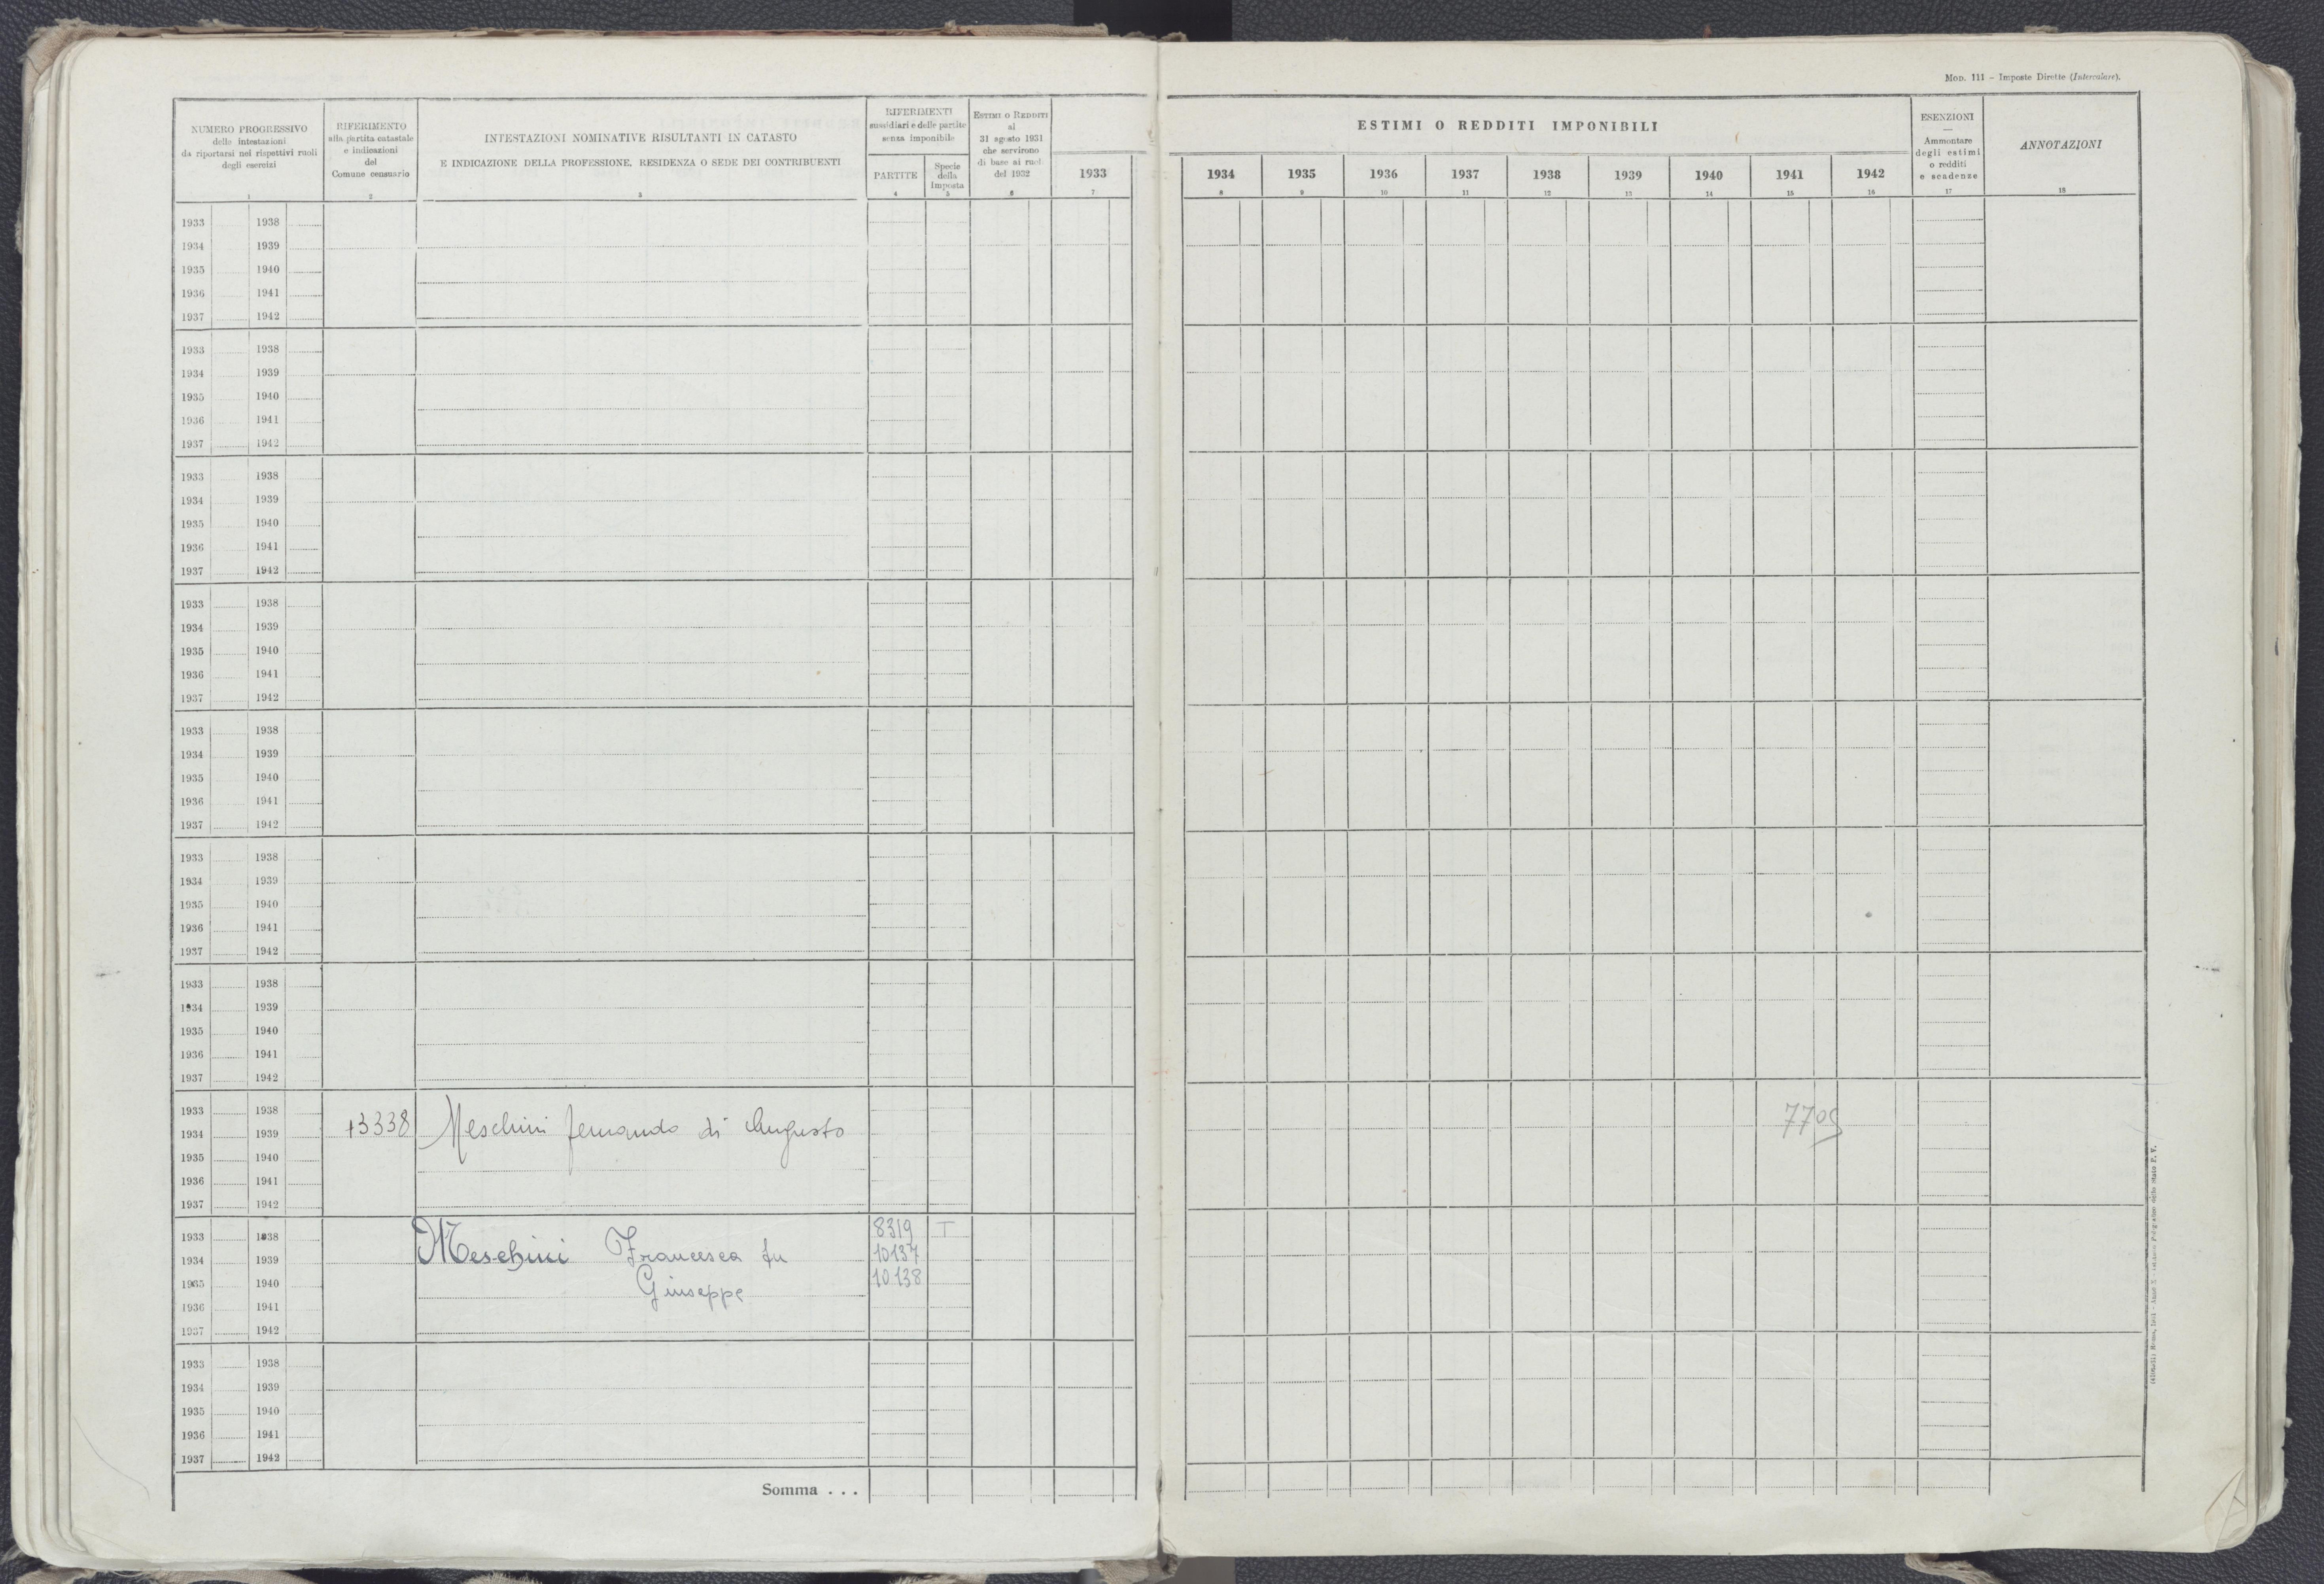 Mod. 111 – Imposte Dirette (Intercalare).
NUMERO PROGRESSIVO
delle intestazioni
da riportarsi nei rispettivi ruoli
degli esercizi
1
RIFERIMENTO
alla partita catastale
e indicazioni
del
Comune censuario
2
INTESTAZIONI NOMINATIVE RISULTANTI IN CATASTO
E INDICAZIONE DELLA PROFESSIONE, RESIDENZA O SEDE DEI CONTRIBUENTI
3
RIFERIMENTI
sussidiari e delle partite
senza imponibile
PARTITE
4
Specie
della
Imposta
5
Estimi o Redditi
al
31 agosto 1931
che servirono
di base ai ruoli
del 1932
6
1933
7
ESTIMI O REDDITI IMPONIBILI
1934 1935 1936 1937 1938 1939 1940 1941 1942
8 9 10 11 12 13 14 15 16
ESENZIONI
—
Ammontare
degli estimi
o redditi
e scadenze
17
ANNOTAZIONI
18
1933 1938
1934 1939
1935 1940
1936 1941
1937 1942
1933 1938
1934 1939
1935 1940
1936 1941
1937 1942
1933 1938
1934 1939
1935 1940
1936 1941
1937 1942
1933 1938
1934 1939
1935 1940
1936 1941
1937 1942
1933 1938
1934 1939
1935 1940
1936 1941
1937 1942
1933 1938
1934 1939
1935 1940
1936 1941
1937 1942
1933 1938
1934 1939
1935 1940
1936 1941
1937 1942
1933 1938
1934 1939 13338 Meschini Fernando di Augusto 7709
1935 1940
1936 1941
1937 1942
1933 1938 8319 T
1934 1939 Meschini Francesca fu 10137
1935 1940 Giuseppe 10138
1936 1941
1937 1942
1933 1938
1934 1939
1935 1940
1936 1941
1937 1942
Somma . . .